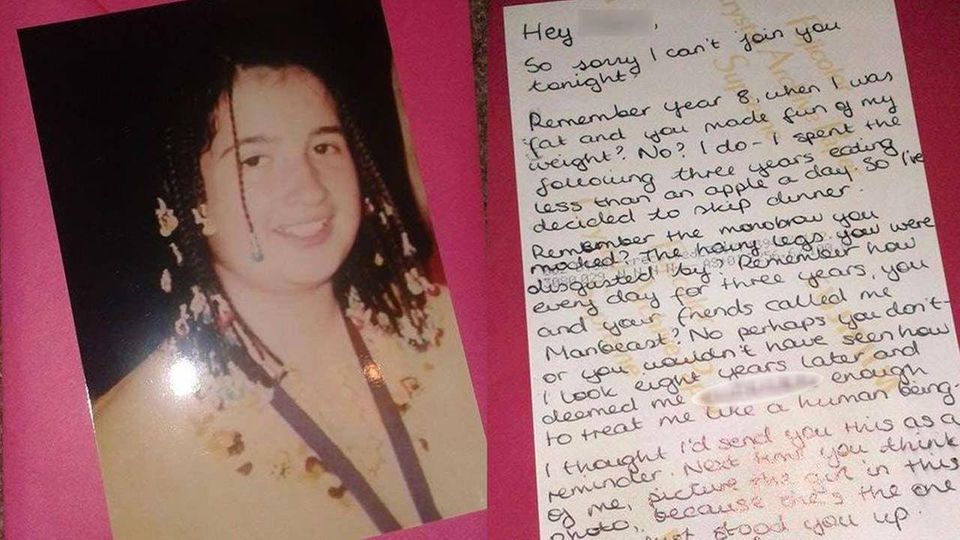 Hey ,
So sorry I can't join you
tonight?
Remember year 8, when I was
fat and you made fun of my
weight? No? I do - I spent the
following three years eating
less than an apple a day. So I've
decided to skip dinner.
Remember the monobrow you
mocked? The hairy legs you were
disgusted by? Remember how
every day for three years, you
and your friends called me
Manbeast? No perhaps you don't-
or you wouldn't have seen how
I look eight years later and
deemed me enough
to treat me like a human being.
I thought I'd send you this as a
reminder. Next time you think
of me, picture the girl in this
photo, because she's the one
just stood you up.